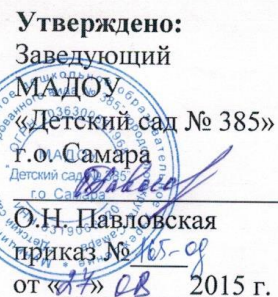 Утверждено:
Заведующий
МАДОУ
«Детский сад № 385»
г.о. Самара
О.Н. Павловская
приказ № 165-од
от «27» 08 2015 г.